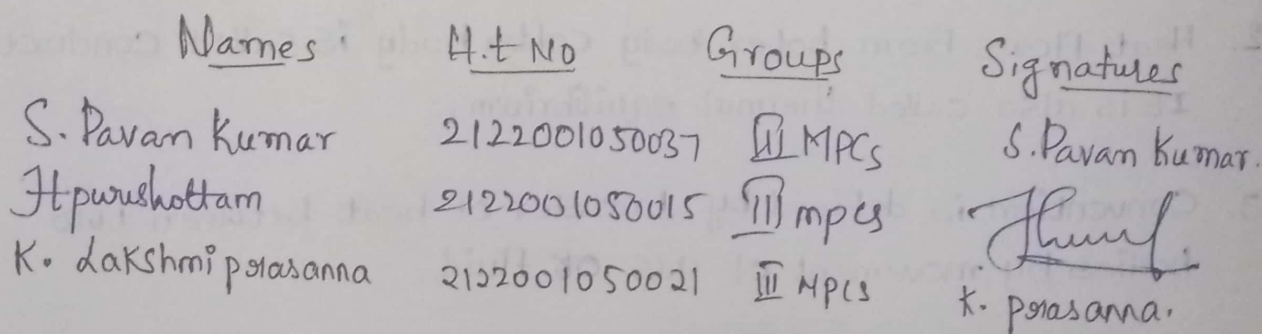 Names H.t NO Groups Signatures
S. Pavan Kumar 2122001050037 III MPCs S. Pavan Kumar.
H purushottam 2122001050015 III mpcs
K. Lakshmi prasanna 2122001050021 III MPCS K. prasanna.